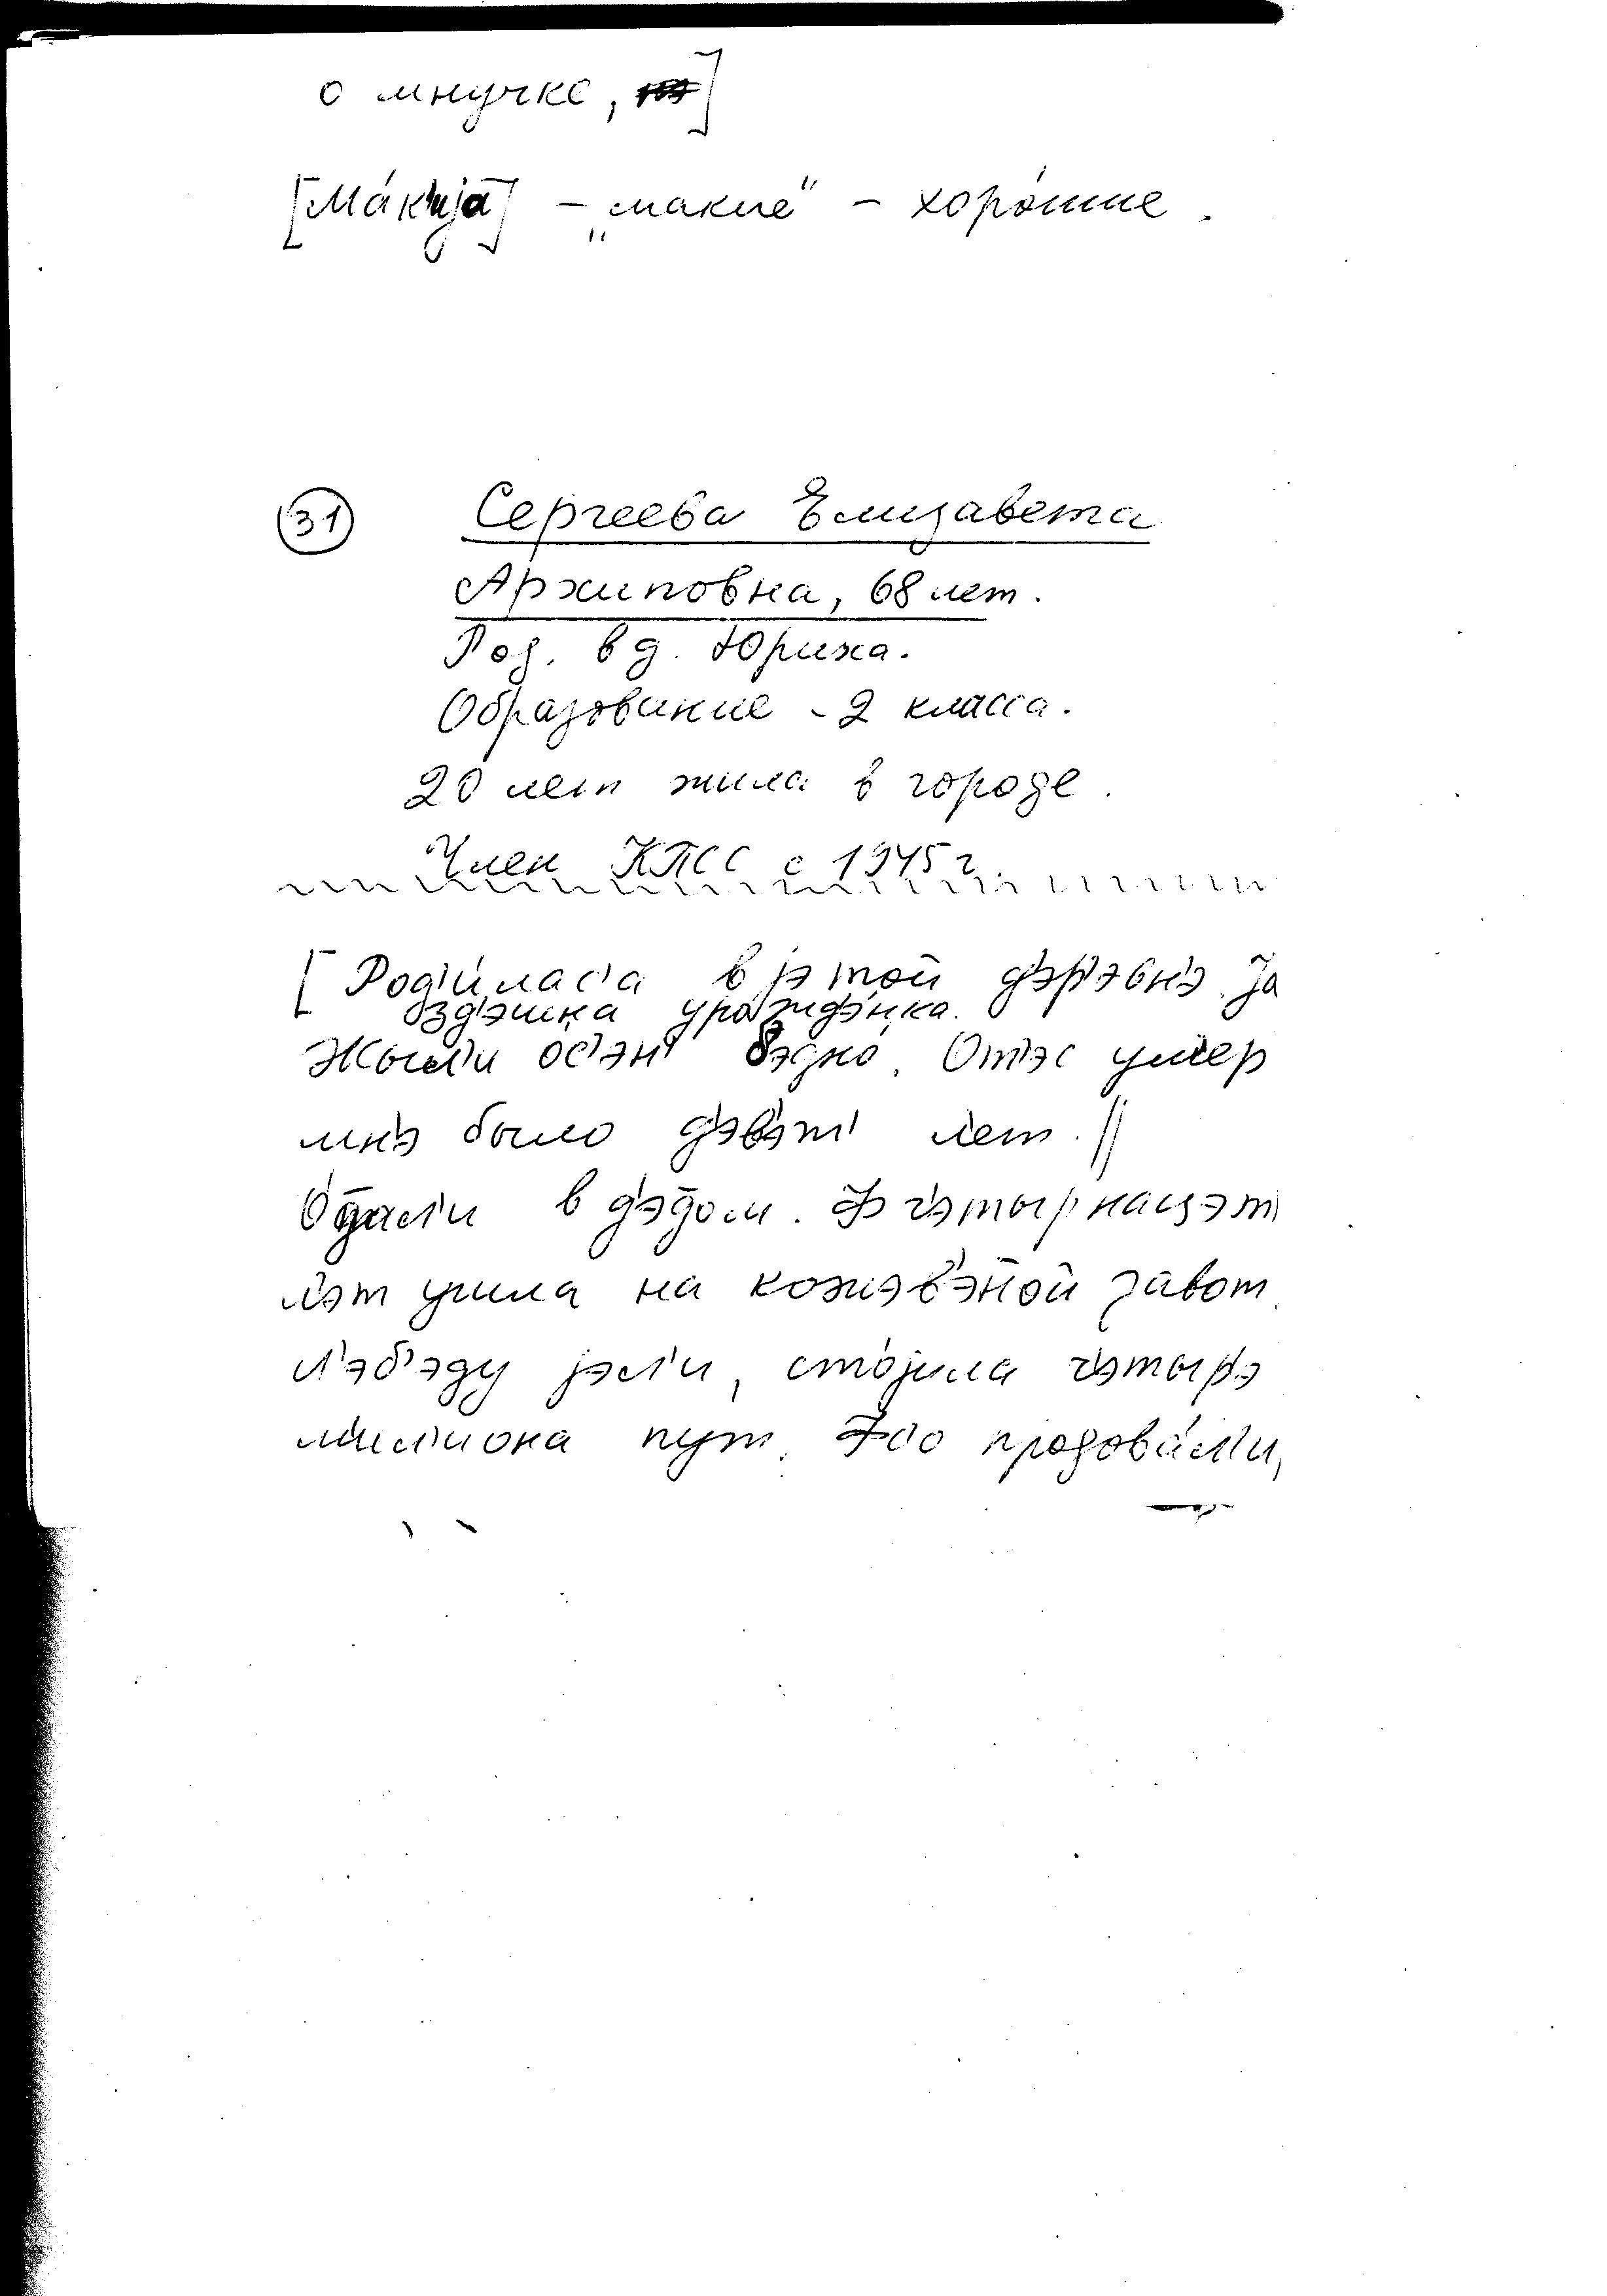 о мнучке,]
[Ма́к'ија̄] – „макие“ – хоро́шие.
(31) Сергеева Елизавета
Архиповна, 68 лет.
Род. в д. Юриха.
Образование - 2 класса.
20 лет жила в городе.
Член КПСС с 1945 г.
[Род'и́лас'а в јэтой д'эр'эвн'э. Ја
озд'эшн'а урожд'энка.
Жыл'и ос'эн' б'эдно. От'эс ум'ер
мн'э было д'эв'эт' л'ет. //
О̄дал'и в д'эдом. Ф ч'этырнацэт'
л'эт ушла на кожэв'эной завот.
Л'эб'эду јэл'и, сто́јила ч'этыр'э
мил'иона пут. продова́л'и,